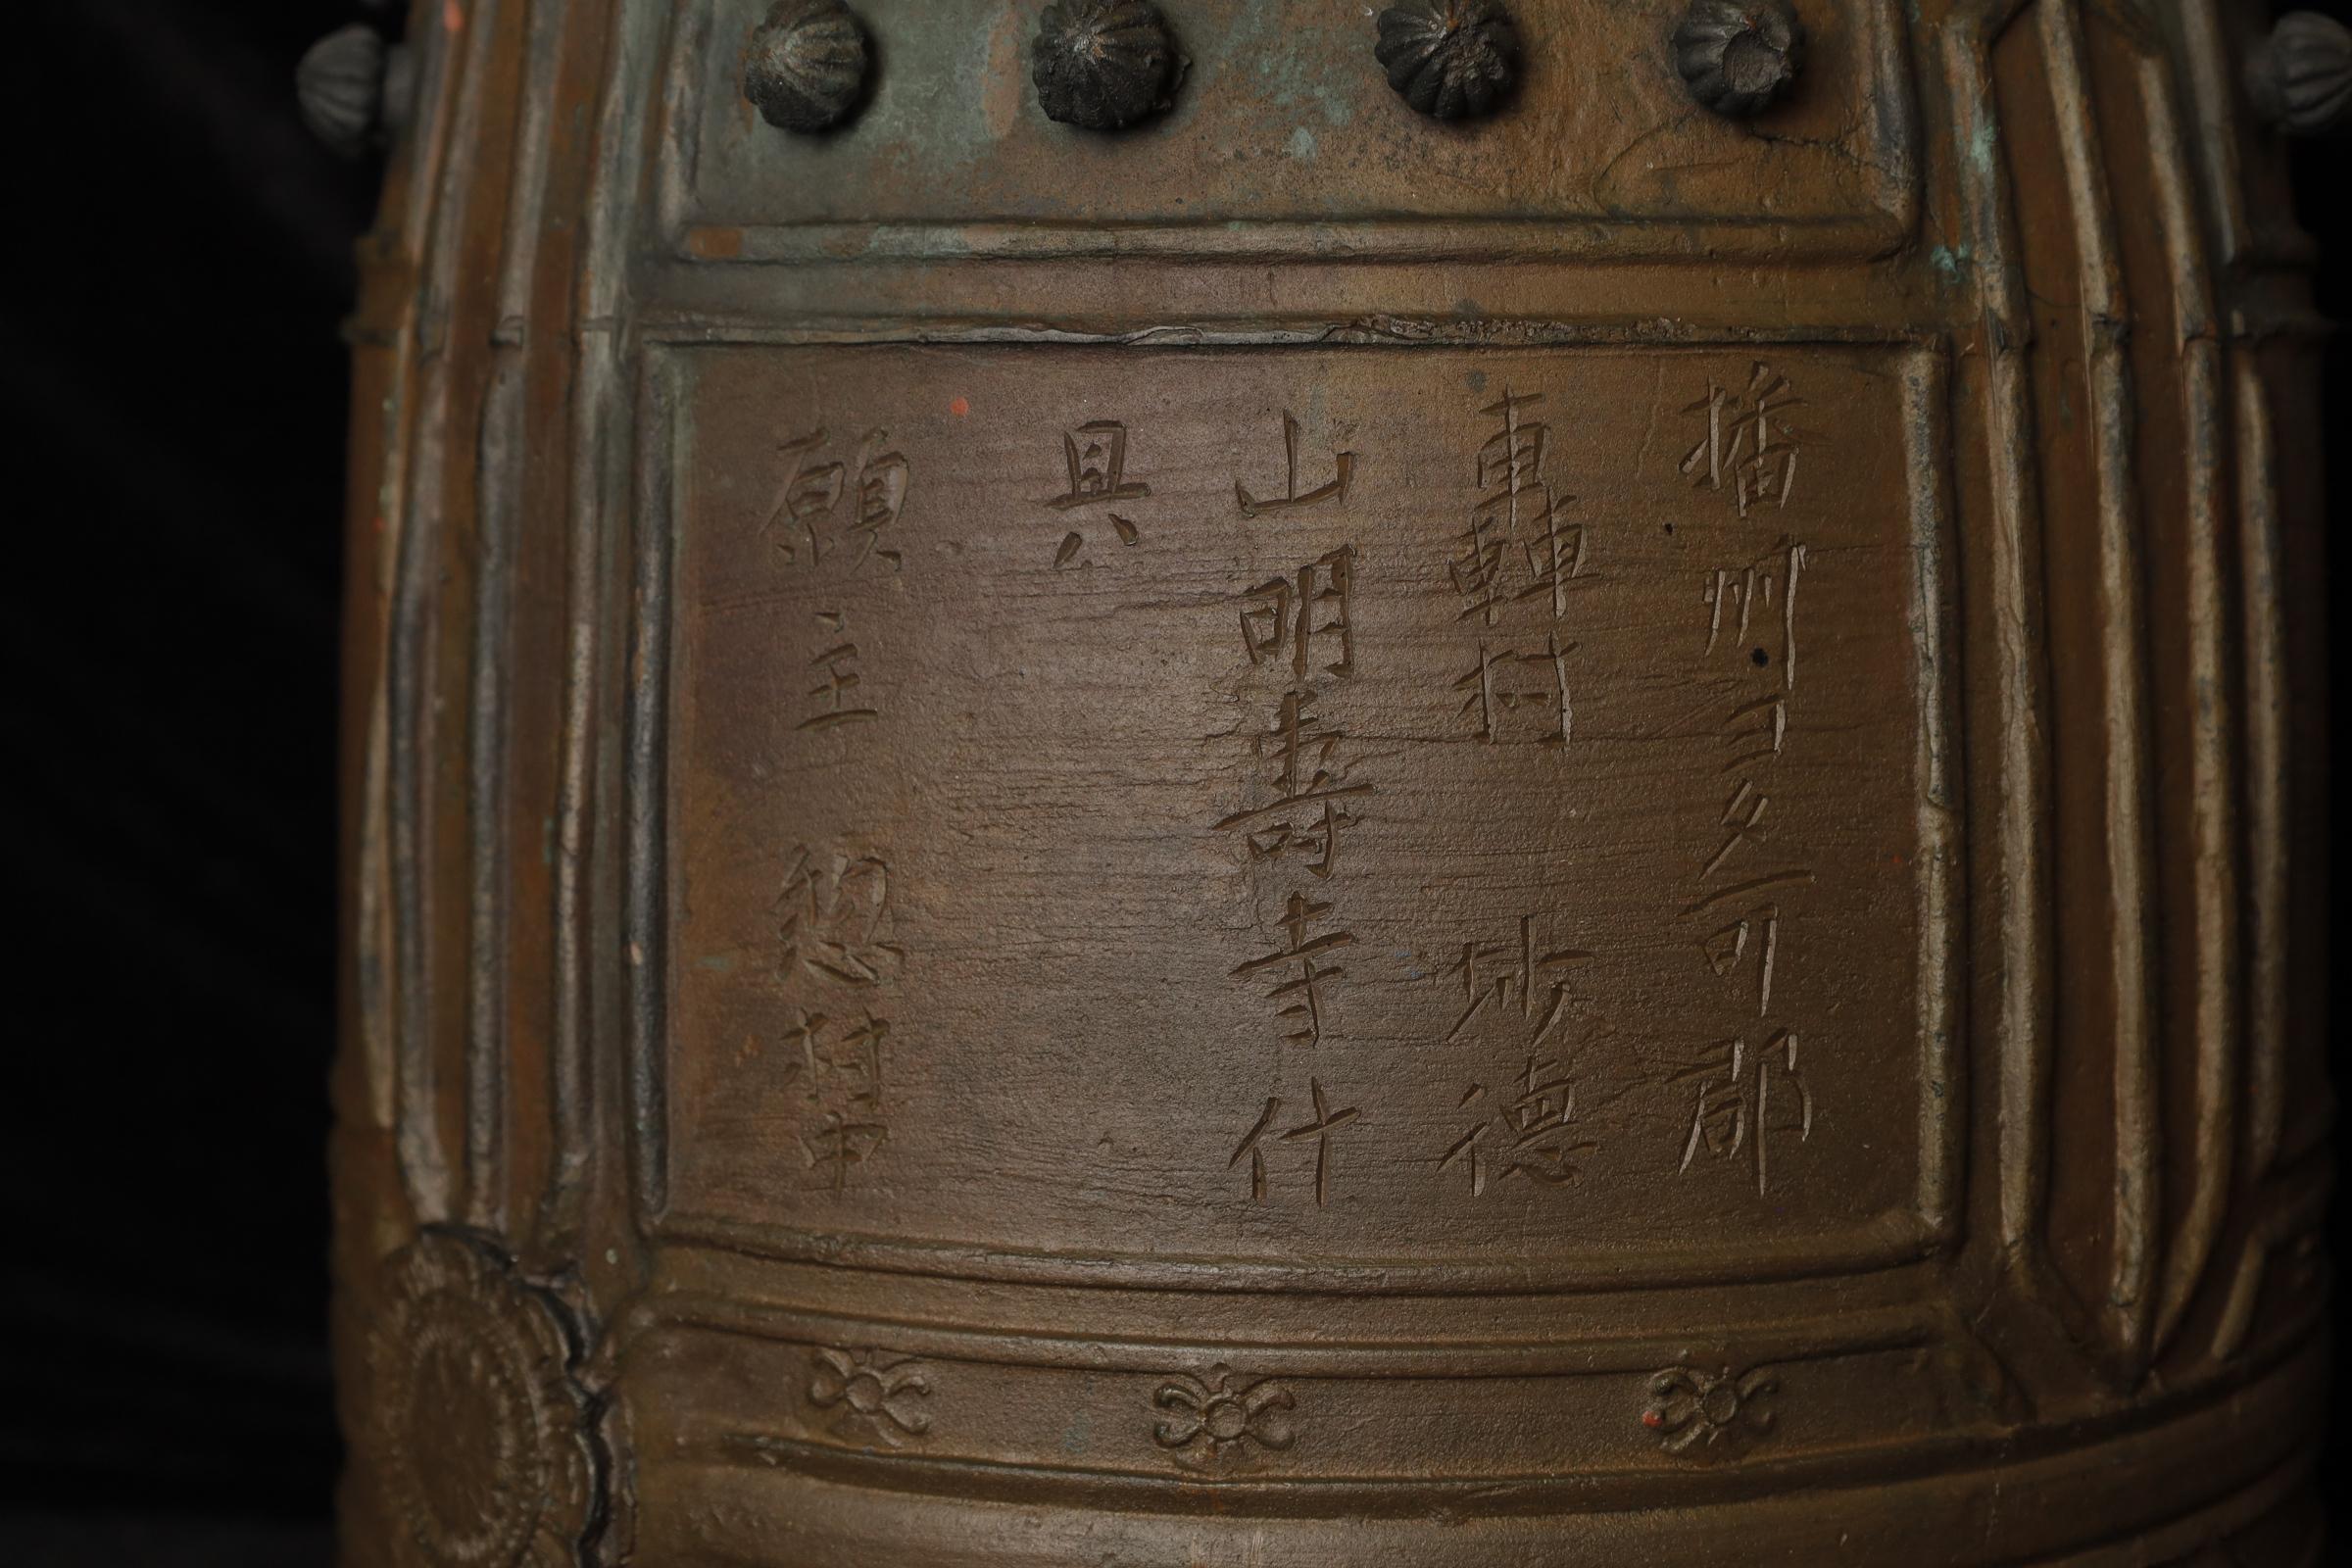 播州多可郡
轟村 妙徳
山明壽寺什
具
願主 惣村中